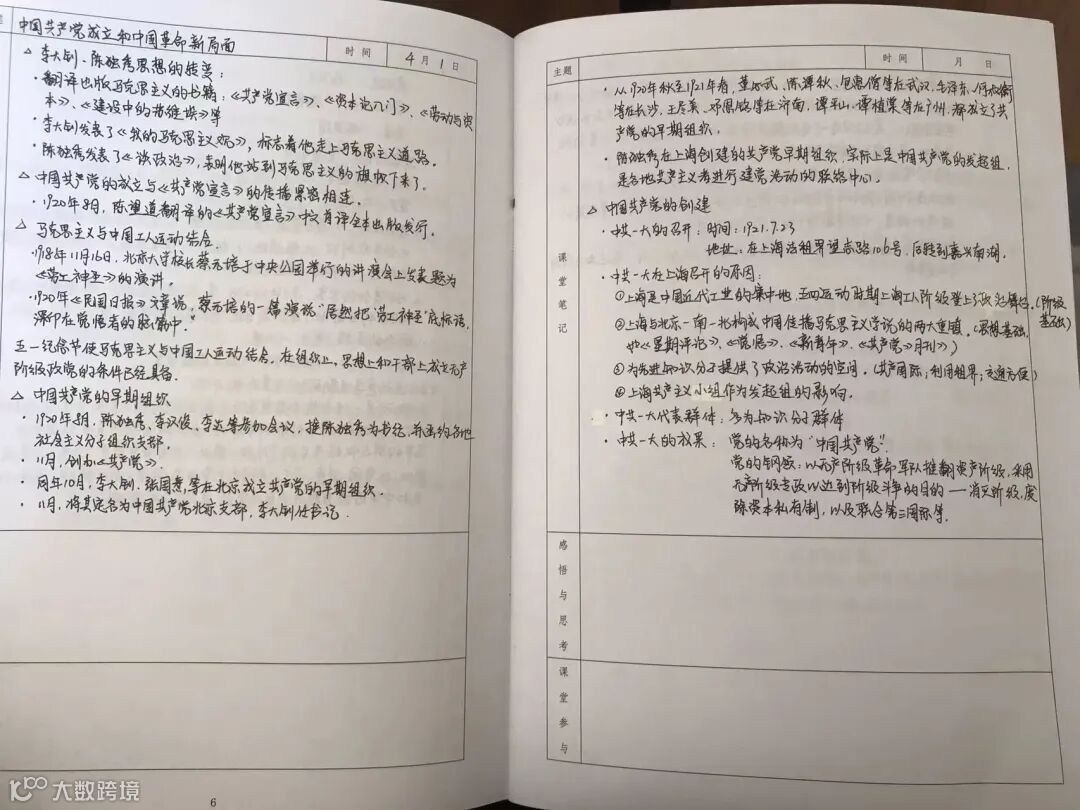 中国共产党成立和中国革命新局面
时间 4月1日
△ 李大钊、陈独秀思想的转变：
·翻译出版马克思主义的书籍：《共产党宣言》、《资本论入门》、《劳动与资
本》、《建设中的苏维埃》等
·李大钊发表了《我的马克思主义观》，标志着他走上马克思主义道路。
·陈独秀发表了《谈政治》，表明他站到马克思主义的旗帜下来了。
△ 中国共产党的成立与《共产党宣言》的传播紧密相连。
·1920年8月，陈望道翻译的《共产党宣言》中文首译全本出版发行。
△ 马克思主义与中国工人运动结合.
·1918年11月16日，北京大学校长蔡元培于中央公园举行的讲演会上发表题为
《劳工神圣》的演讲。
·1920年《民国日报》文章说，蔡元培的一篇演说“居然把‘劳工神圣’底标语，
深印在觉悟者的脑筋中.”
五一纪念节使马克思主义与中国工人运动结合. 在组织上，思想上和干部上成立无产
阶级政党的条件已经具备.
△ 中国共产党的早期组织
·1920年8月，陈独秀、李汉俊、李达等参加会议，推陈独秀为书记，并函约各地
社会主义分子组织支部.
·11月，创办《共产党》.
·同年10月，李大钊、张国焘，等在北京成立共产党的早期组织.
·11月，将其定名为中国共产党北京支部，李大钊任书记.
6
主题
时间 月 日
·从1920年秋至1921年春，董必武、陈潭秋、包惠僧等在武汉，毛泽东、何叔衡
等在长沙，王尽美、邓恩铭等在济南，谭平山、谭植棠等在广州，都成立了共
产党的早期组织.
·陈独秀在上海创建的共产党早期组织，实际上是中国共产党的发起组，
是各地共产主义者进行建党活动的联络中心。
△ 中国共产党的创建
·中共一大的召开：时间：1921.7.23
地址：在上海法租界望志路106号，后转到嘉兴南湖.
·中共一大在上海召开的原因：
①上海是中国近代工业的集中地，五四运动时期上海工人阶级登上了政治舞台.（阶级
基础）
②上海与北京一南一北构成中国传播马克思主义学说的两大重镇.（思想基础.
如《星期评论》、《觉悟》、《新青年》、《共产党》月刊）
③为先进知识分子提供了政治活动的空间.（共产国际；利用租界；交通方便）
④上海共产主义小组作为发起组的影响.
·中共一大代表群体：多为知识分子群体
·中共一大的成果：党的名称为“中国共产党”.
党的纲领：以无产阶级革命军队推翻资产阶级，采用
无产阶级专政以达到阶级斗争的目的——消灭阶级，废
除资本私有制，以及联合第三国际等.
课堂笔记
感悟与思考
课堂参与
大数跨境